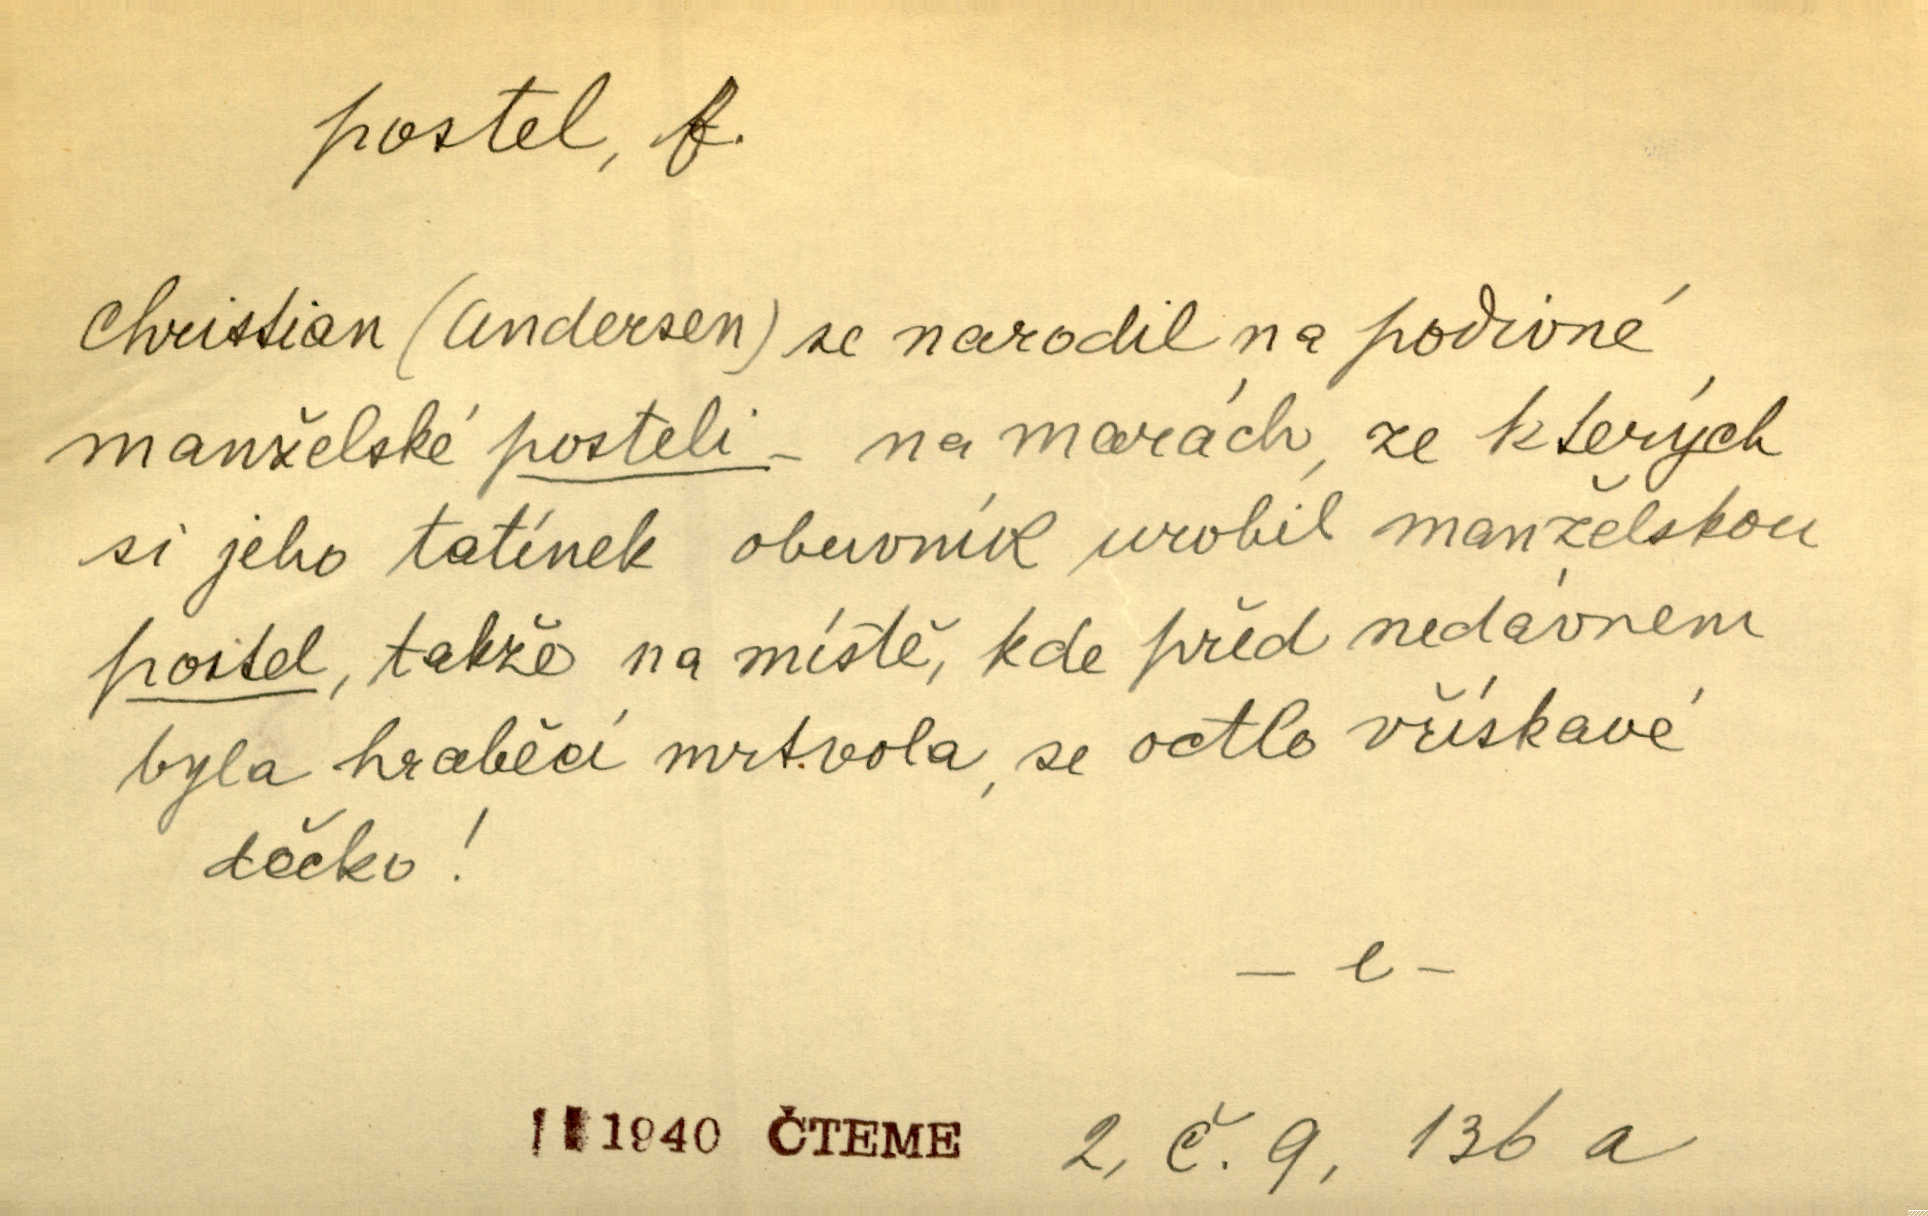 postel, f.
Christian (Andersen) se narodil na podivné
manželské posteli - na marách, ze kterých
si jeho tatínek obuvník urobil manželskou
postel, takže na místě, kde před nedávnem
byla hraběcí mrtvola, se octlo vřískavé
děcko!
- e -
1940 ČTEME 2, č. 9, 136 a